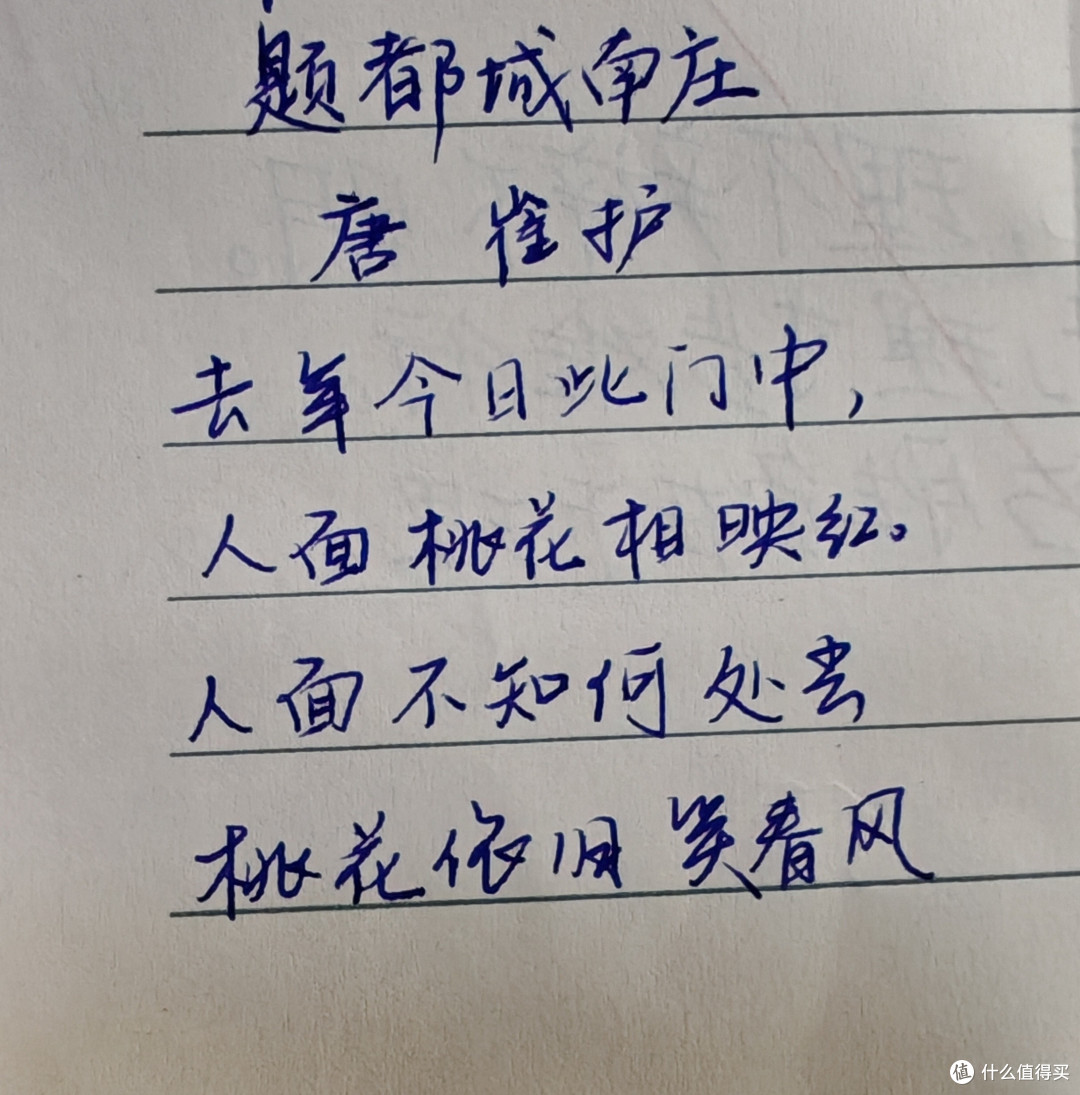 题都城南庄
唐 崔护
去年今日此门中,
人面桃花相映红。
人面不知何处去
桃花依旧笑春风
值 什么值得买